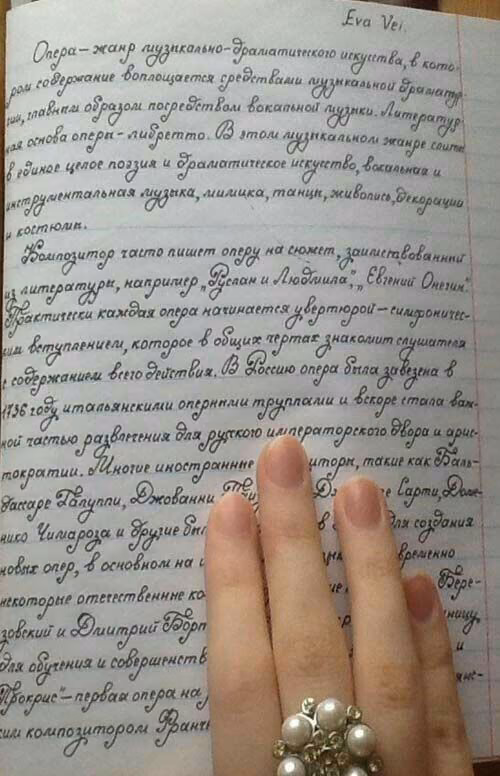 Eva Vei.
Опера – жанр музыкально-драматического искусства, в кото-
ром содержание воплощается средствами музыкальной драматур-
гии, главным образом посредством вокальной музыки. Литератур-
ная основа оперы – либретто. В этом музыкальном жанре слиты
в единое целое поэзия и драматическое искусство, вокальная и
инструментальная музыка, мимика, танцы, живопись, декорации
и костюмы.
Композитор часто пишет оперу на сюжет, заимствованный
из литературы, например „Руслан и Людмила", „Евгений Онегин".
Практически каждая опера начинается увертюрой – симфоничес-
ким вступлением, которое в общих чертах знакомит слушателя
с содержанием всего действия. В Россию опера была завезена в
1736 году итальянскими оперными труппами и вскоре стала важ-
ной частью развлечения для русского императорского двора и арис-
тократии. Многие иностранные такие как Баль-
дассаре Галуппи, Джованни Сарти, Доме-
нико Чимароза и другие в для создания
новых опер, в основном на
некоторые отечественные Бере-
зовский и Дмитрий
для обучения и и
Прокрис" – первая опера на
ким композитором